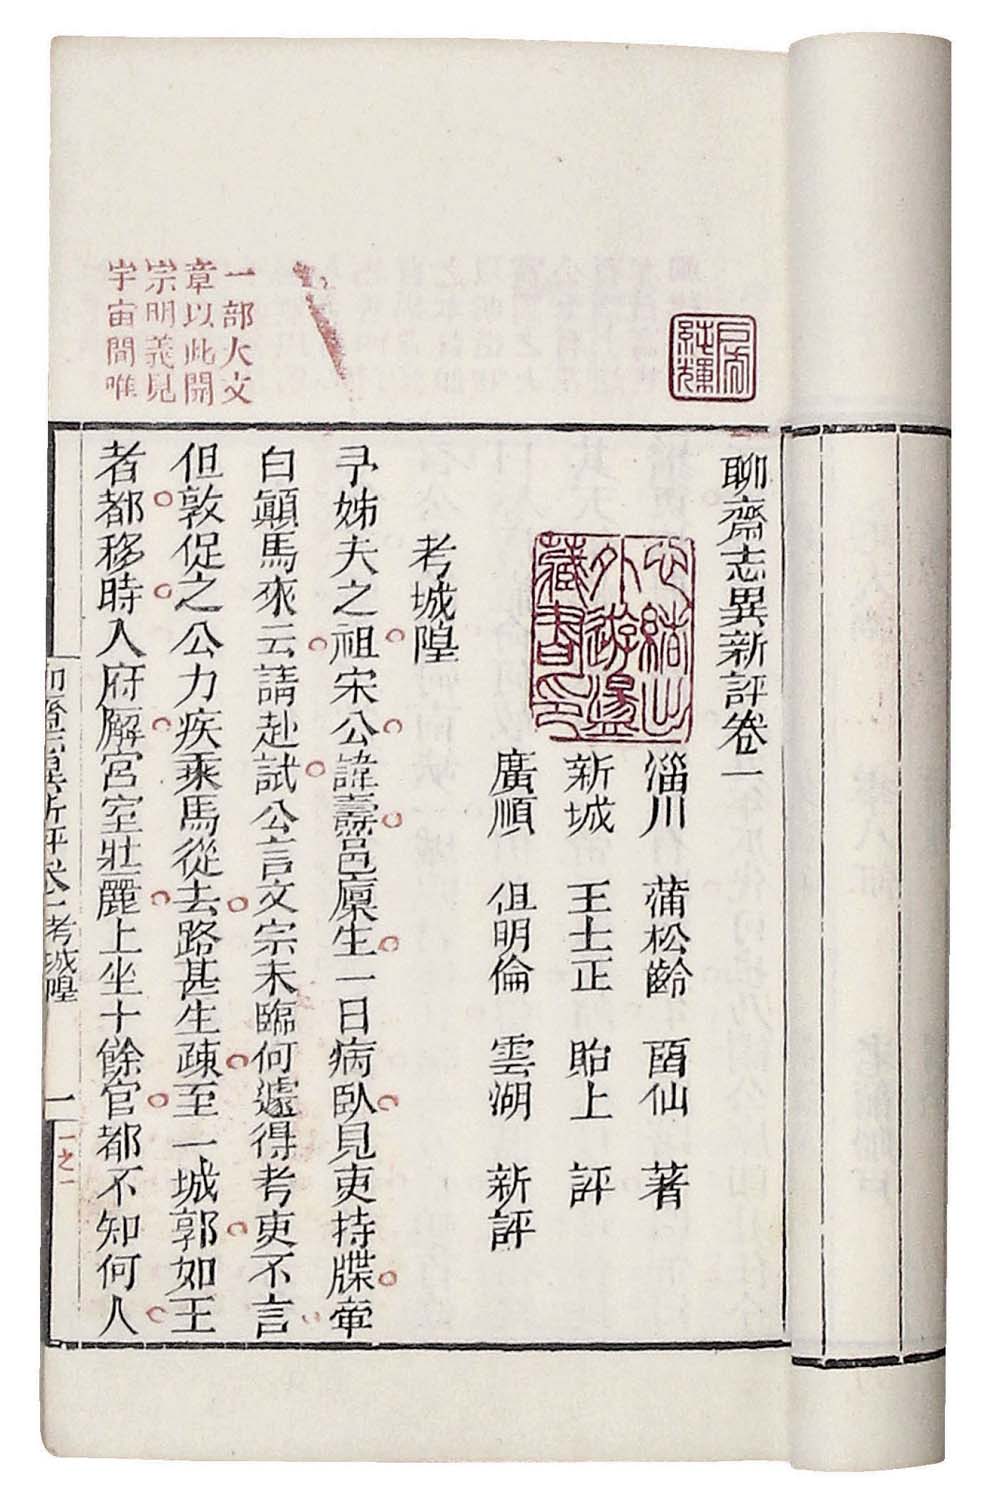 聊齋志異新評卷一
淄川　蒲松齡　畱仙　著
新城　王士正　貽上　評
廣順　但明倫　雲湖　新評
考城隍
予姊夫之祖宋公諱燾邑廩生一日病臥見吏持牒牽
白顚馬來云請赴試公言文宗未臨何遽得考吏不言
但敦促之公力疾乘馬從去路甚生疎至一城郭如王
者都移時入府廨宮室壯麗上坐十餘官都不知何人
一部大文
章以此開
宗明義見
宇宙間唯
聊齋志異新評卷一考城隍
一
一之一